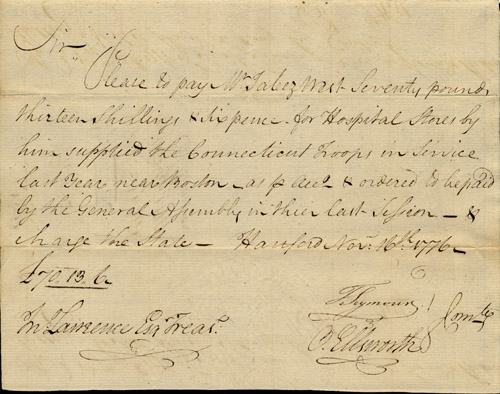 Sir
Please to pay Mr. Jabez West Seventy pounds
thirteen Shillings & Six pence for Hospital Stores by
him supplied the Connecticut Troops in Service
last Year near Boston – as p Acct. & ordered to be paid
by the General Assembly in their last Session – &
charge the State – Hartford Novr. 16th. 1776
£70. 13. 6
Jn Lawrence Esqr Treasr.
T Seymour
O. Ellsworth
Comtee